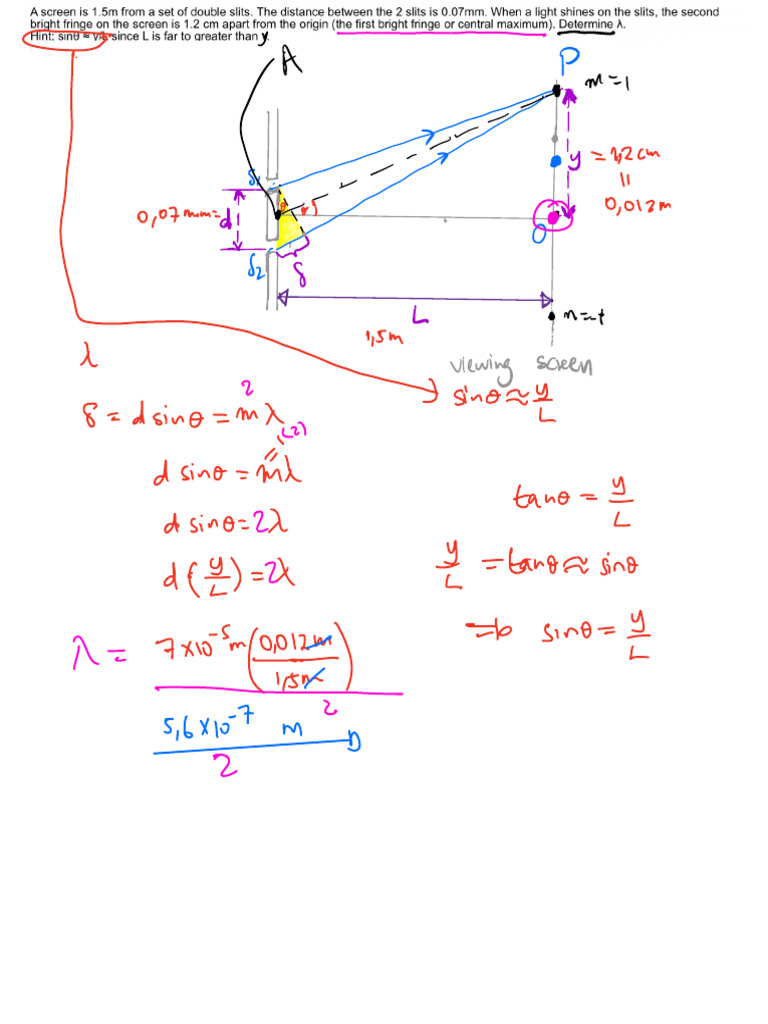 A screen is 1.5m from a set of double slits. The distance between the 2 slits is 0.07mm. When a light shines on the slits, the second
bright fringe on the screen is 1.2 cm apart from the origin (the first bright fringe or central maximum). Determine λ.
Hint: sinθ ≈ y/L since L is far to greater than y.
A
P
m=1
S1
y = 1,2 cm
"
0,012 m
0,07 mm = d
θ
O
S2
δ
L
1,5 m
m=-1
viewing screen
λ
sinθ ≈ y/L
2
δ = d sinθ = mλ
(2)
d sinθ = mλ
tanθ = y/L
d sinθ = 2λ
y/L = tanθ ≈ sinθ
d (y/L) = 2λ
sinθ = y/L
λ = 7×10⁻⁵ m (0,012m / 1,5m)
2
5,6×10⁻⁷ m
2